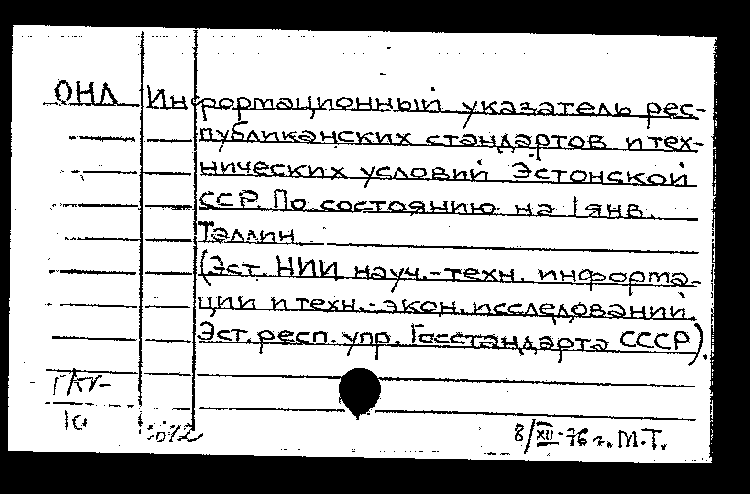 ОНЛ Информационный указатель рес-
публиканских стандартов и тех-
нических условий Эстонской
ССР. По состоянию на 1 янв.
Таллин
(Эст. НИИ науч.-техн. информа-
ции и техн.-экон. исследований.
Эст. респ. упр. Госстандарта СССР).
10
8/XII-76 г. М.Т.